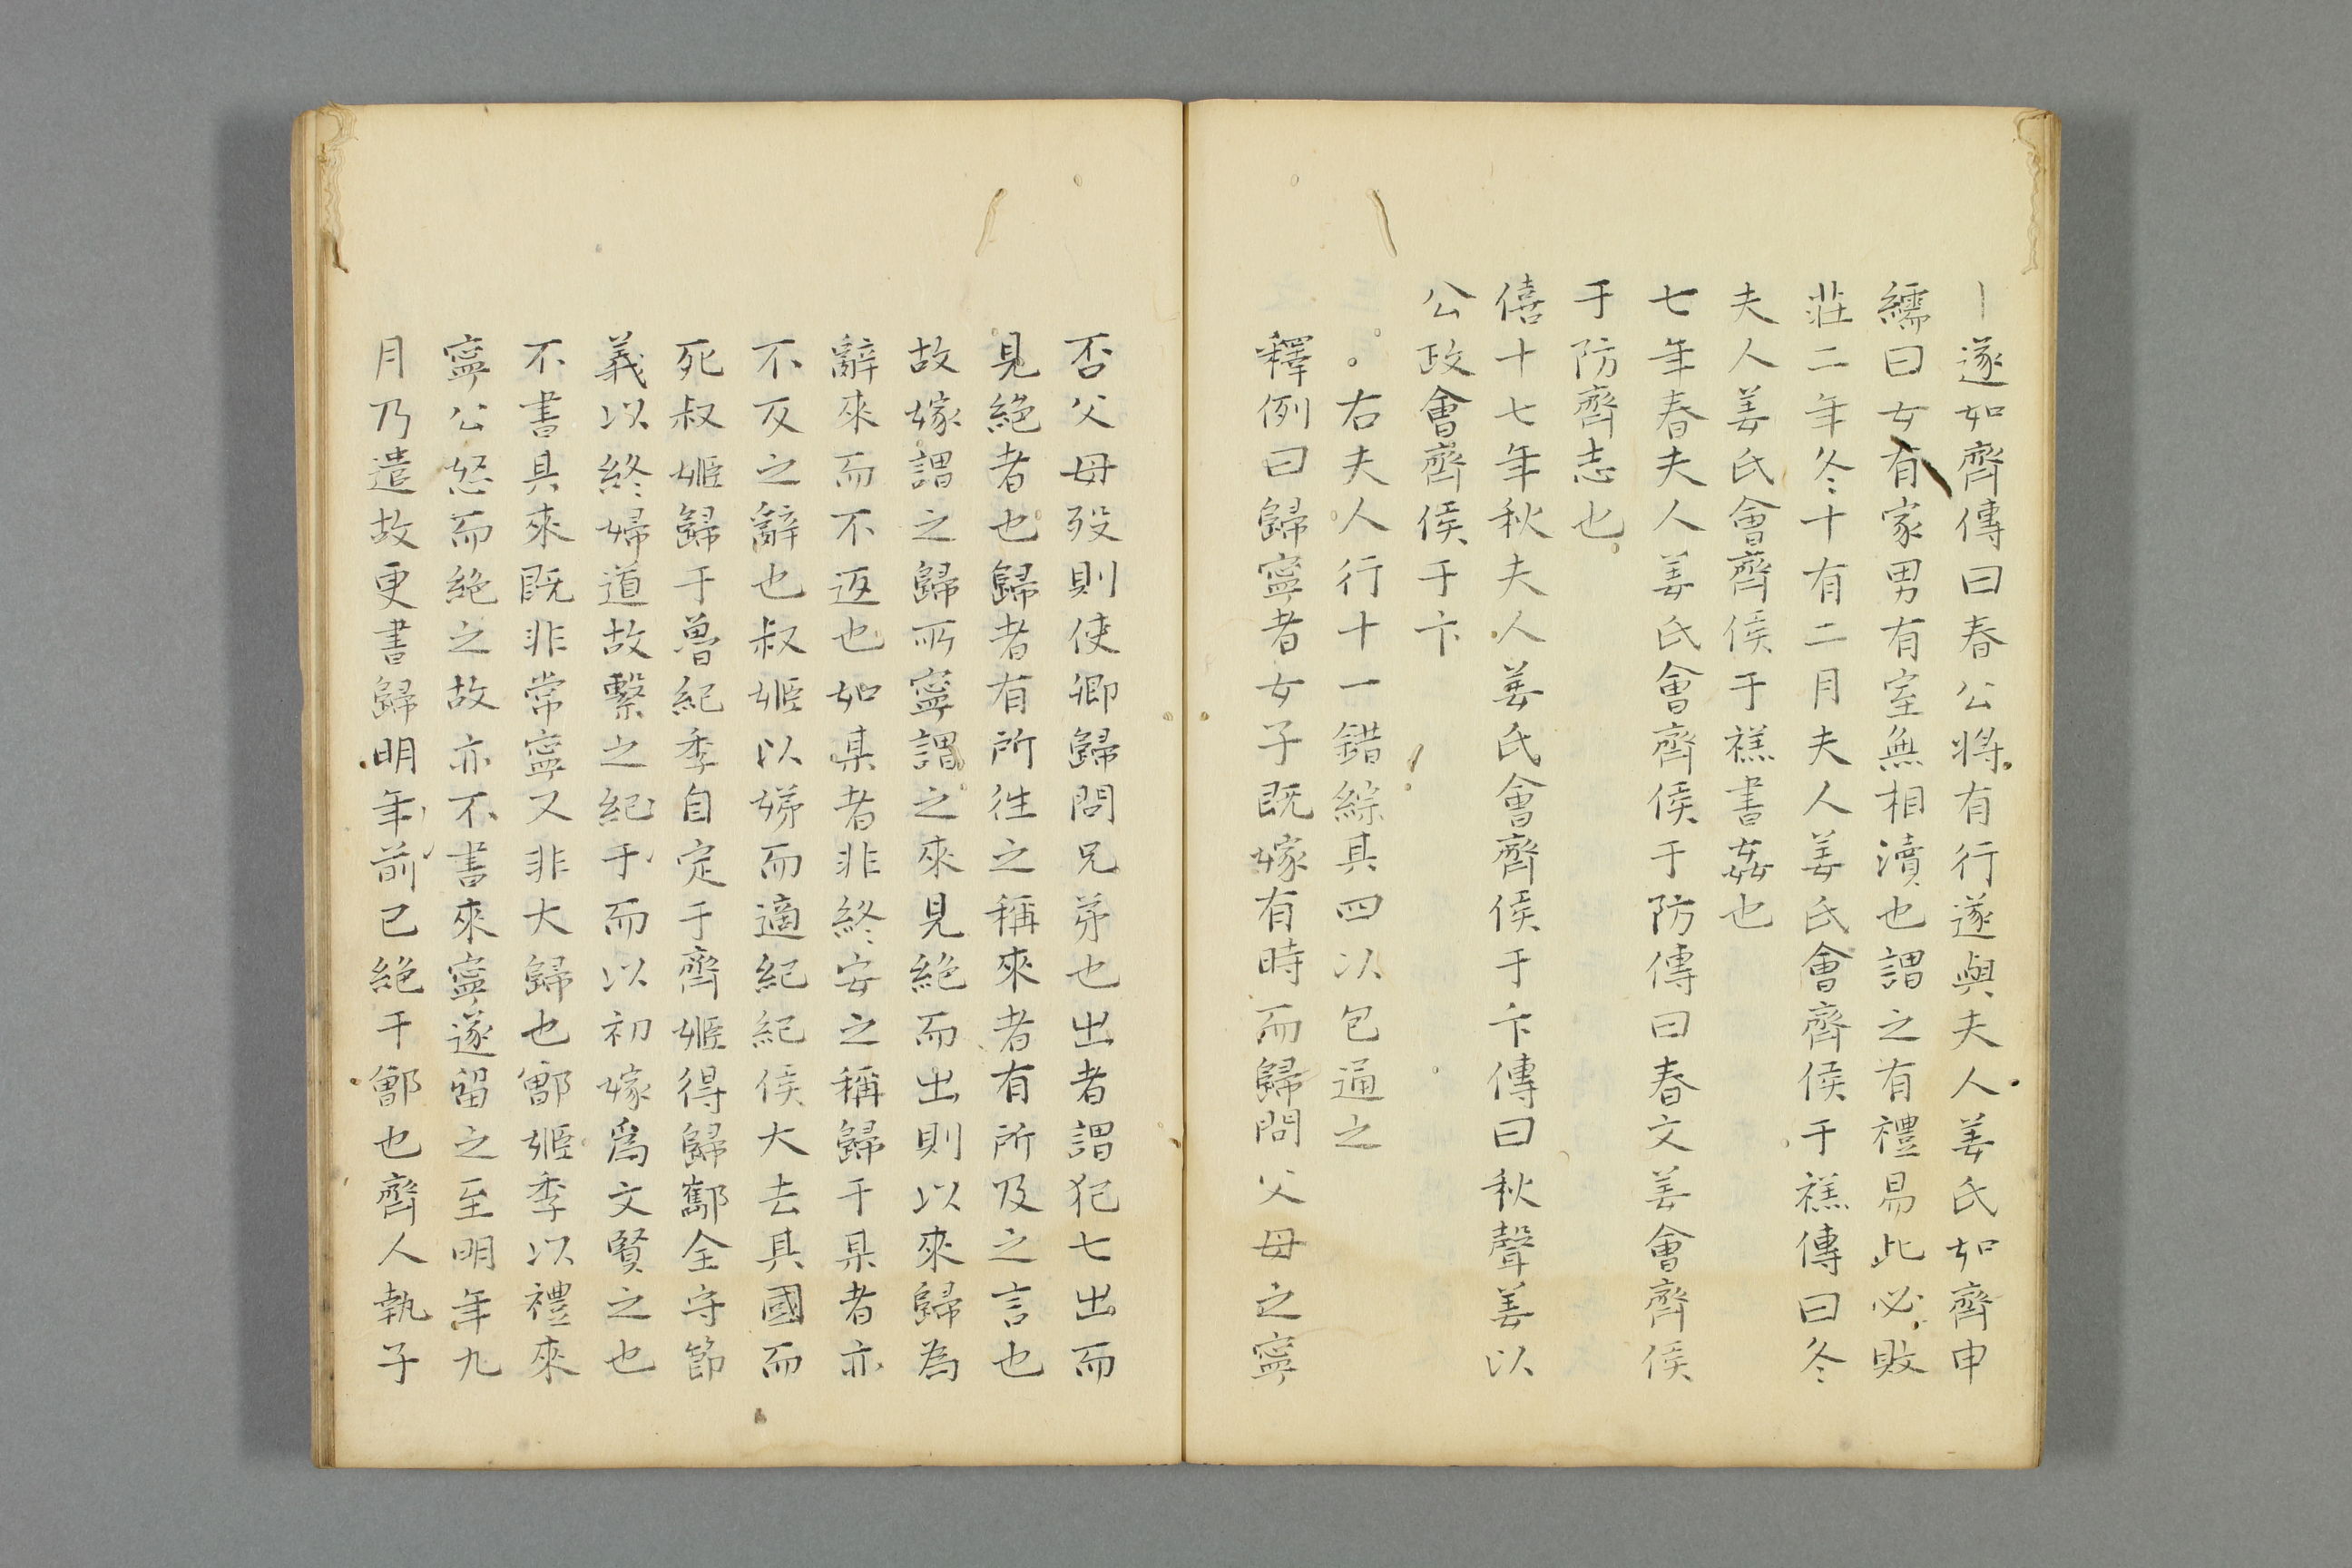 丨遂如齊傳曰春公將有行遂與夫人姜氏如齊申
繻曰女有家男有室無相瀆也謂之有禮易此必敗
莊二年冬十有二月夫人姜氏會齊侯于禚傳曰冬
夫人姜氏會齊侯于禚書姦也
七年春夫人姜氏會齊侯于防傳曰春文姜會齊侯
于防齊志也
僖十七年秋夫人姜氏會齊侯于卞傳曰秋聲姜以
公政會齊侯于卞
右夫人行十一錯綜其四以包通之
釋例曰歸寧者女子既嫁有時而歸問父母之寧
否父母歿則使卿歸問兄弟也出者謂犯七出而
見絶者也歸者有所往之稱來者有所及之言也
故嫁謂之歸而寧謂之來見絶而出則以來歸為
辭來而不返也如某者非終安之稱歸于某者亦
不反之辭也叔姬以娣而適紀紀侯大去其國而
死叔姬歸于魯紀季自定于齊姬得歸酅全守節
義以終婦道故繫之紀于而以初嫁爲文賢之也
不書其來既非常寧又非大歸也鄫姬季以禮來
寧公怒而絶之故亦不書來寧遂留之至明年九
月乃遣故更書歸明年前已絶于鄫也齊人執子